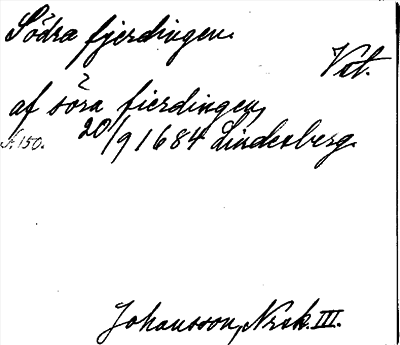 Södra fjerdingen.
Vet.
af söra fierdingen,
s. 150. 20/9 1684 Lindesberg.
Johansson, Norsk. III.